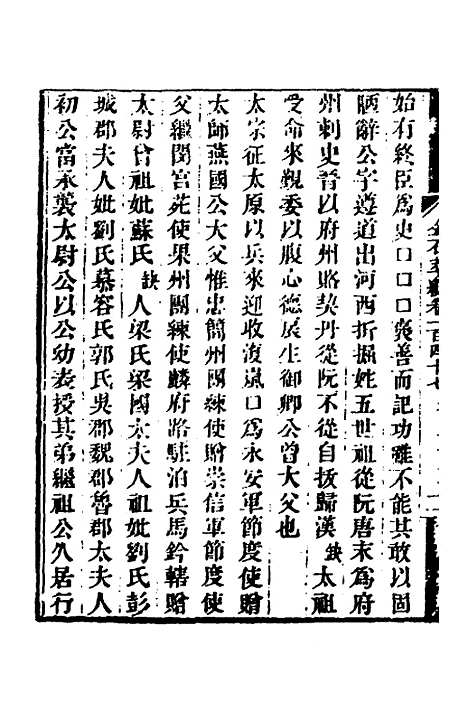 始有終臣為史口口口褒善而記功雖不能其敢以固
陋辭公字遵道出河西折掘姓五世祖從阮唐末為府
州刺史晉以府州賂契丹從阮不從自拔歸漢缺太祖
受命來覲委以腹心德扆生御卿公曾大父也
太宗征太原以兵來迎收復嵐口為永安軍節度使贈
太師燕國公大父惟忠簡州團練使贈崇信軍節度使
父繼閔宮苑使果州團練使麟府路駐泊兵馬鈐轄贈
太尉曾祖妣蘇氏缺人梁氏梁國太夫人祖妣劉氏彭
城郡夫人妣劉氏慕容氏郭氏吳郡魏郡魯郡太夫人
初公當承襲太尉公以公幼表授其弟繼祖公久居行
金石萃編卷一百四十七